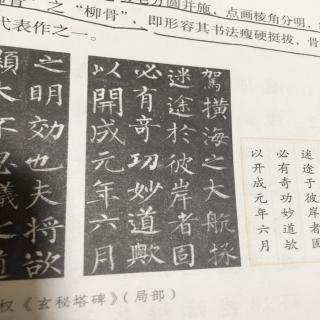 方圆并施，点画棱角分明，
之“柳骨”，即形容其书法瘦硬挺拔，骨
代表作之一。
駕横海之大航拯
迷途於彼岸者固
必有奇功妙道歟
以開成元年六月
之明効也夫将欲
顯大不思議之道
迷途于彼岸者固
必有奇功妙道欤
以开成元年六月
权《玄秘塔碑》（局部）